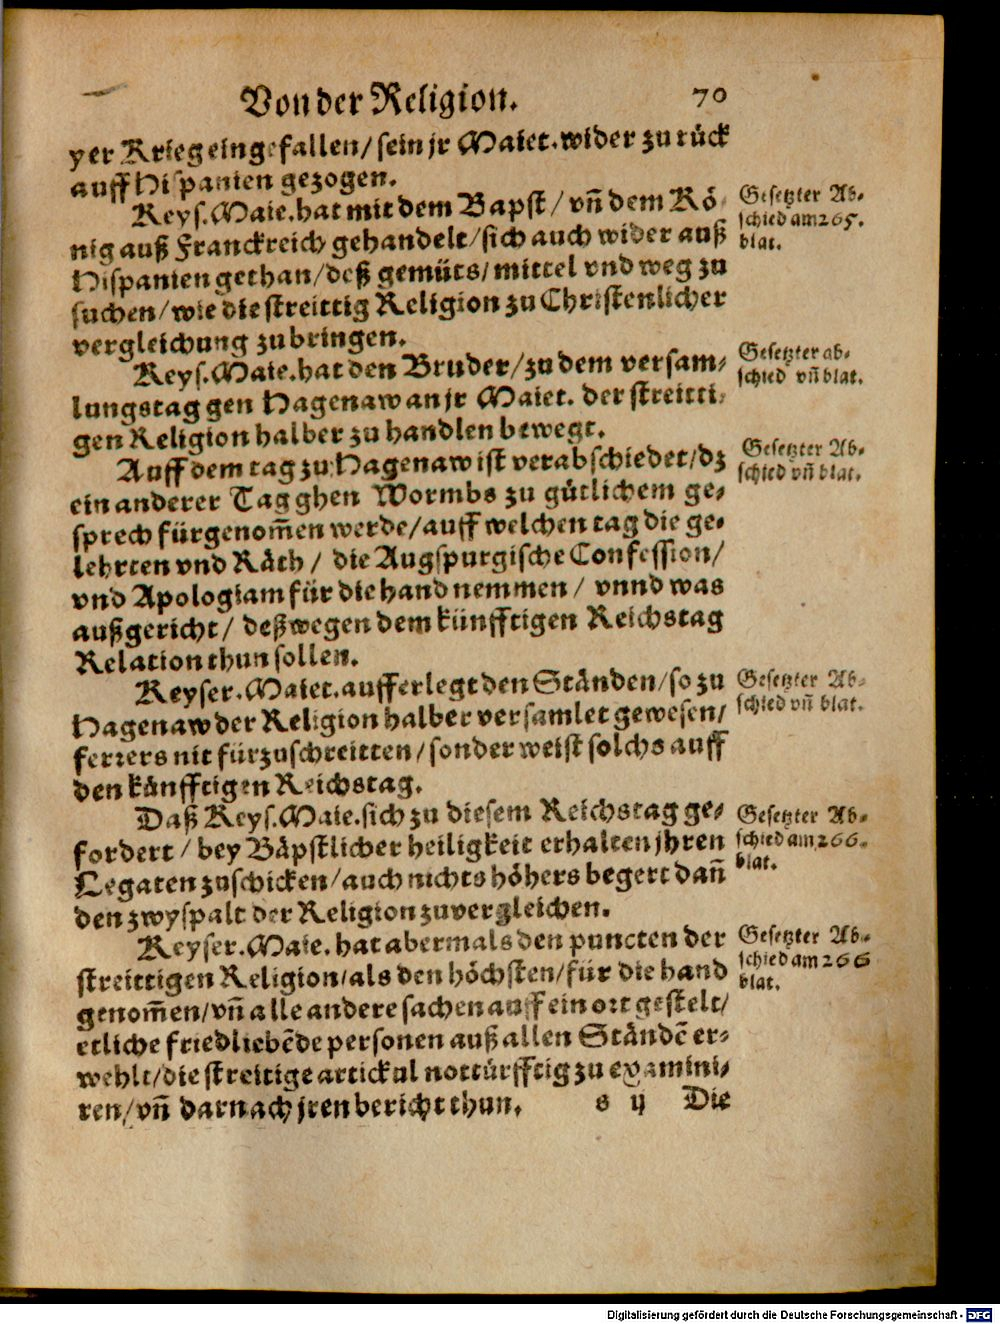 Von der Religion. 70
yer Krieg eingefallen/ sein jr Maiet. wider zu rück
auff Hispanien gezogen.
Keys. Maie. hat mit dem Bapst/ vn̄ dem Kö-
nig auß Franckreich gehandelt/ sich auch wider auß
Hispanien gethan/ deß gemüts/ mittel vnd weg zu
suchen/ wie die streittig Religion zu Christenlicher
vergleichung zu bringen.
Gesetzter Ab-
schied am 265.
blat.
Keys. Maie. hat den Bruder/ zu dem versam-
lungstag gen Hagenaw an jr Maiet. der streitti-
gen Religion halber zu handlen bewegt.
Gesetzter ab-
schied vn̄ blat.
Auff dem tag zu Hagenaw ist verabschiedet/ dz
ein anderer Tag ghen Wormbs zu gütlichem ge-
sprech fürgenom̄en werde/ auff welchen tag die ge-
lehrten vnd Räth/ die Augspurgische Confession/
vnd Apologiam für die hand nemmen/ vnnd was
außgericht/ deßwegen dem künfftigen Reichstag
Relation thun sollen.
Gesetzter Ab-
schied vn̄ blat.
Keyser. Maiet. aufferlegt den Ständen/ so zu
Hagenaw der Religion halber versamlet gewesen/
ferrers nit fürzuschreitten/ sonder weist solchs auff
den känfftigen Reichstag.
Gesetzter Ab-
schied vn̄ blat.
Daß Keys. Maie. sich zu diesem Reichstag ge-
fordert/ bey Bäpstlicher heiligkeit erhalten jhren
Legaten zuschicken/ auch nichts höhers begert dan̄
den zwyspalt der Religion zuvergleichen.
Gesetzter Ab-
schied am 266.
blat.
Keyser. Maie. hat abermals den puncten der
streittigen Religion/ als den höchsten/ für die hand
genom̄en/ vn̄ alle andere sachen auff ein ort gestelt/
etliche friedliebēde personen auß allen Ständē er-
wehlt/ die streitige artickul notturfftig zu examini-
ren/ vn̄ darnach jren bericht thun.
Gesetzter Ab-
schied am 266
blat.
s ij Die
Digitalisierung gefördert durch die Deutsche Forschungsgemeinschaft - DFG